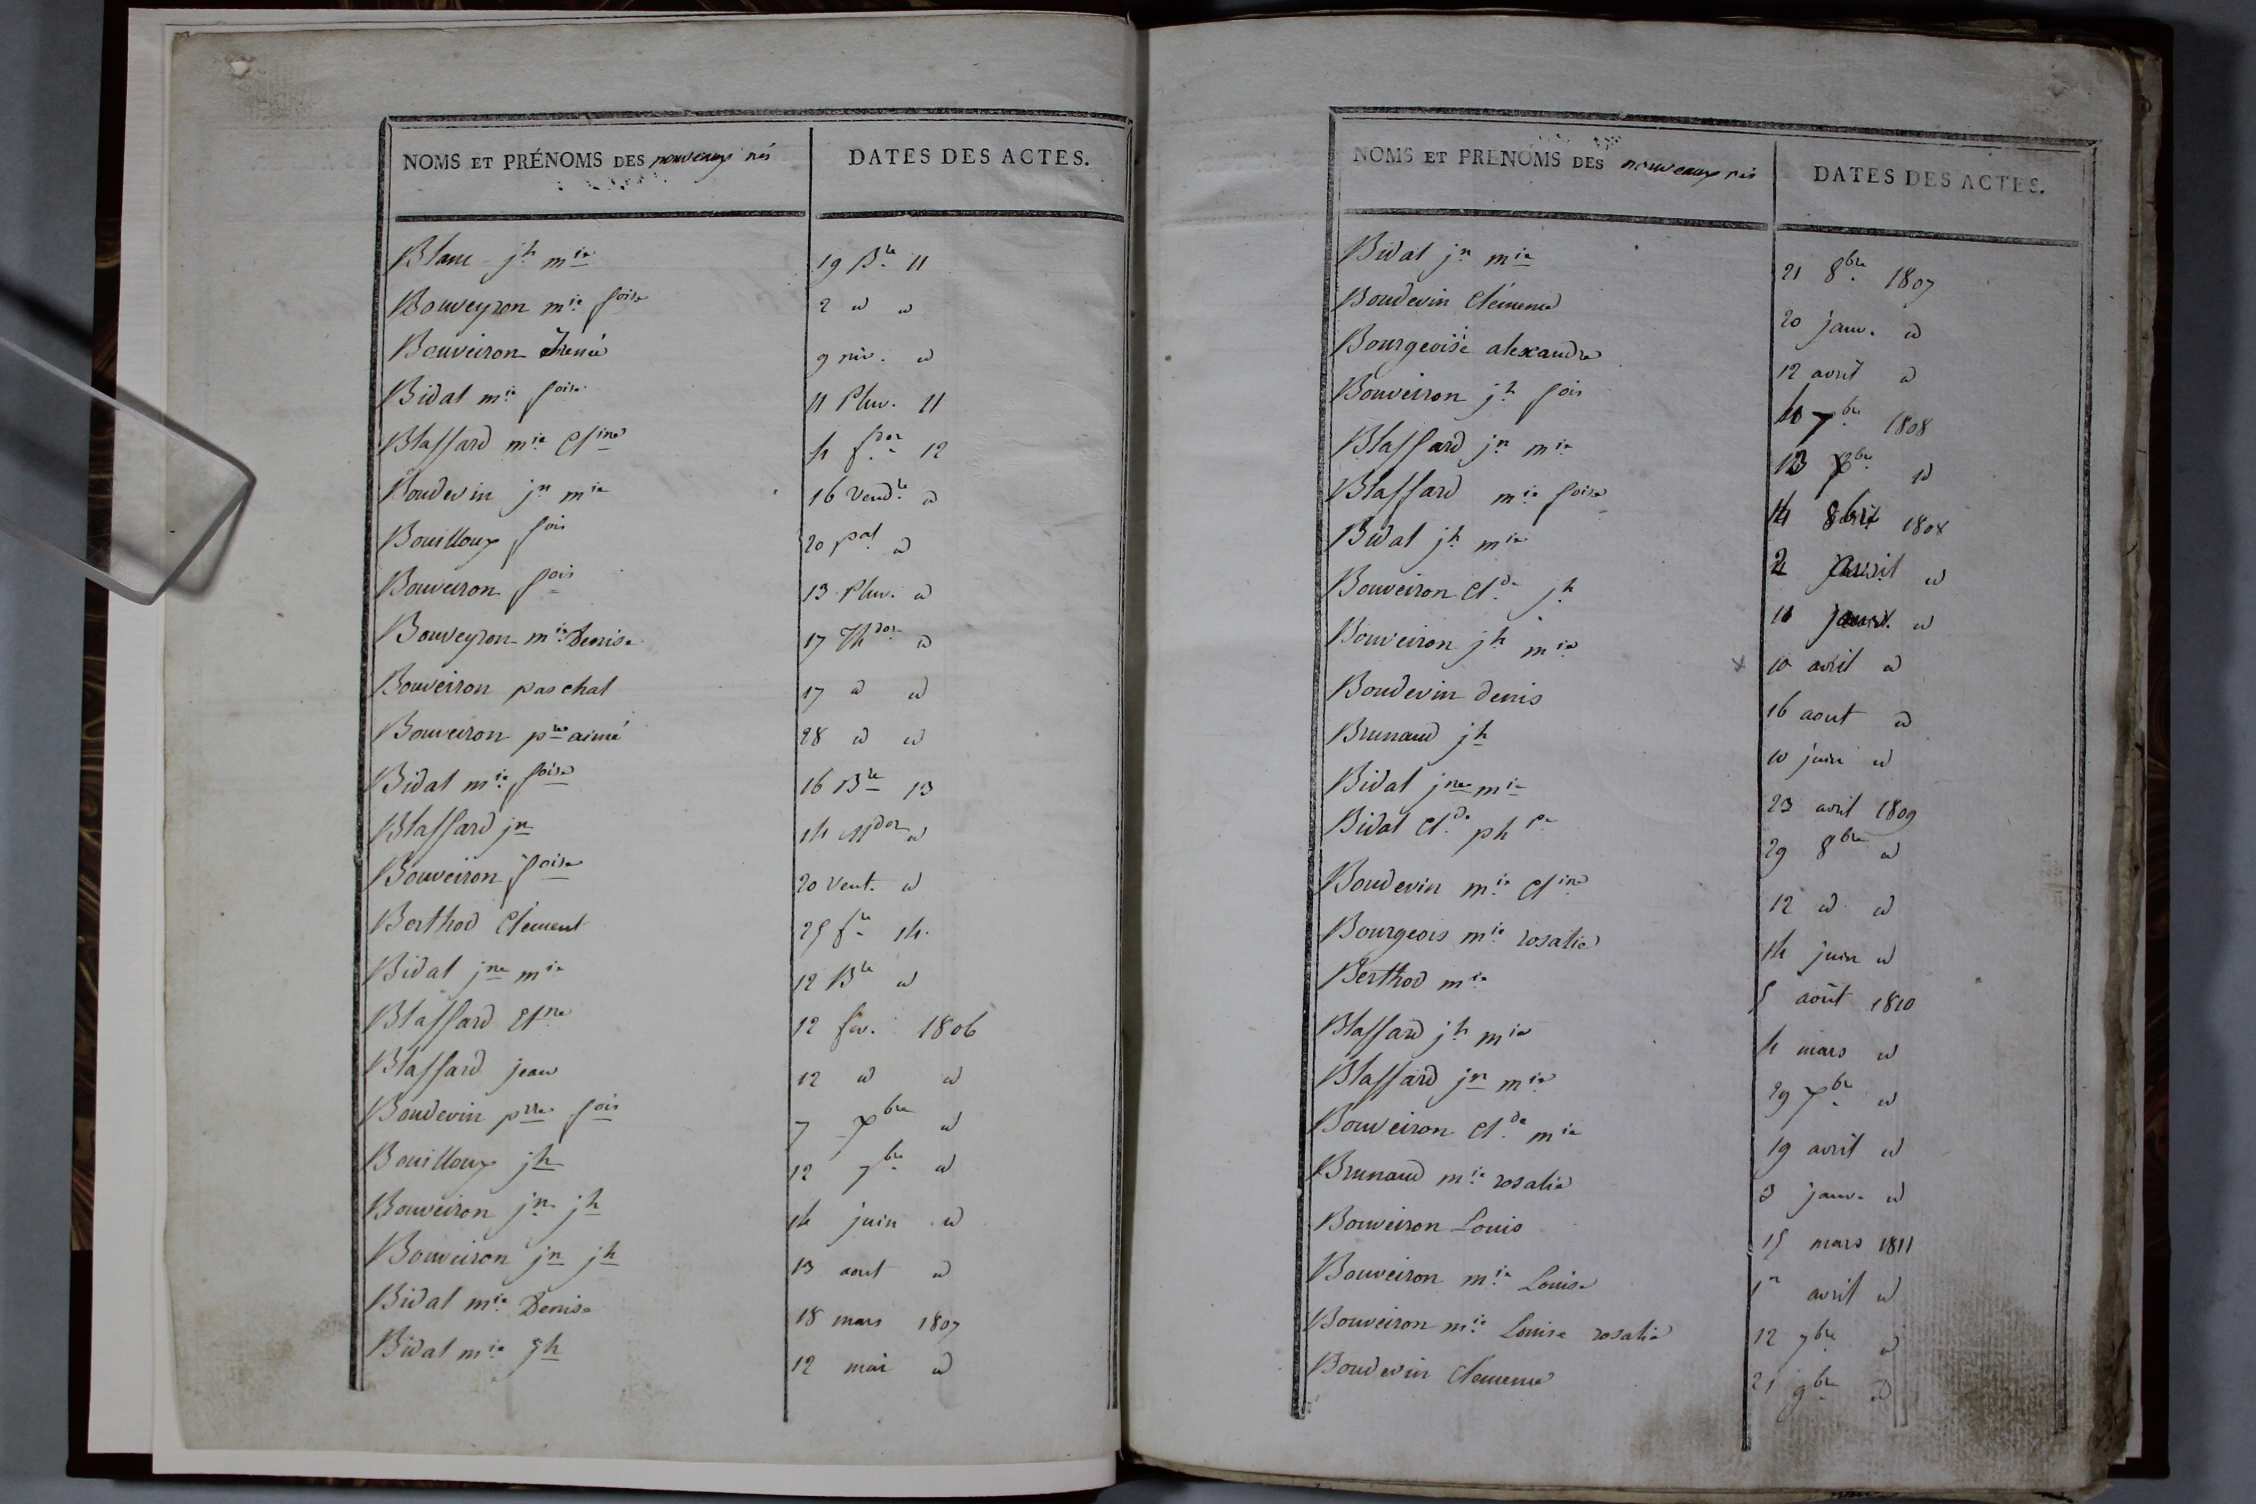 NOMS ET PRÉNOMS DES nouveaux nés DATES DES ACTES.
Blanc jh mie 19 Bre 11
Bouveyron mie foise 2 id id
Bouveiron Irenée 9 niv. id
Bidal mie foise 11 Pluv. 11
Blaffard mie Cfine 4 fdor 12
Boudevin jn mie 16 Vendre id
Bouilloux fois 20 pal id
Bouveiron fois 13 Pluv. id
Bouveyron mie Denise 17 Thdor id
Bouveiron paschal 17 id id
Bouveiron pre aimé 28 id id
Bidal mie foise 16 Bre 13
Blaffard jn 14 Mdor id
Bouveiron foise 20 Vent. id
Berthod Clément 25 fre 14.
Bidal jne mie 12 Bre id
Blaffard Etne 12 fev. 1806
Blaffard jean 12 id id
Boudevin prre fois 7 Xbre id
Bouilloux jh 12 7bre id
Bouveiron jn jh 14 juin id
Bouveiron jn jh 13 aout id
Bidal mie Denise 18 mars 1807
Bidal mie jh 12 mai id
NOMS ET PRÉNOMS DES nouveaux nés DATES DES ACTES.
Bidal jn mie 21 8bre 1807
Boudevin Clémence 20 janv. id
Bourgeoise alexandre 12 avril id
Bouveiron jh fois 10 7bre 1808
Blaffard jn mie 13 id
Blaffard mie foise 14 1808
Bidal jh mie 2 id
Bouveiron Clde jh id
Bouveiron jh mie 10 avril id
Boudevin denis 16 aout id
Brunaud jh 10 juin id
Bidal jne mie 23 avril 1809
Bidal Clde ph pe 29 8bre id
Boudevin mie Cfine 12 id id
Bourgeois mie rosalie 14 juin id
Berthod mie 5 août 1810
Blaffard jh mie 4 mars id
Blaffard jn mie 29 7bre id
Bouveiron Clde mie 19 avril id
Brunaud mie rosalie 3 janv. id
Bouveiron Louis 15 mars 1811
Bouveiron mie Louise 1er avril id
Bouveiron mie Louise rosalie 12 7bre id
Boudevin Clemence 21 9bre id